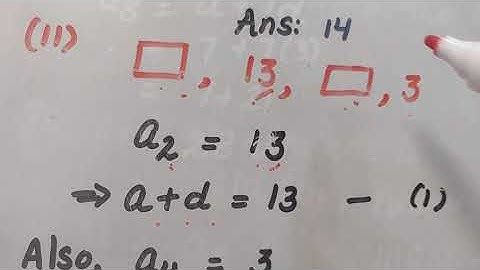 Ans: 14
(11) □, 13, □, 3
a₂ = 13
⇒ a+d = 13 — (1)
Also, a₄ = 3